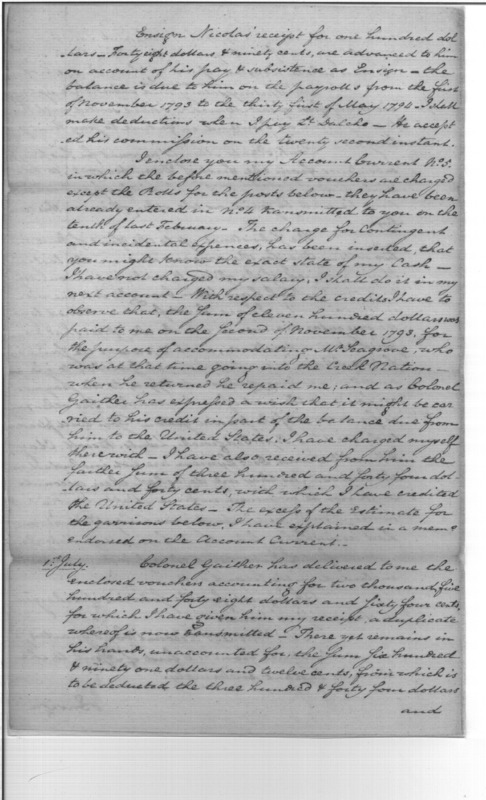 Ensign Nicolas' receipt for one hundred dol
lars – Forty eight dollars & ninety cents, are advanced to him
on account of his pay & subsistence as Ensign – the
balance is due to him on the payrolls from the first
of November 1793 to the thirty first of May 179 I shall
make deductions when I pay Lt Dalcho – He accept
ed his commission on the twenty second instant.
I enclose you my Account Current No. 5.
in which the before mentioned vouchers are charged
except the Rolls for the posts below – they have been
already entered in No. 4 transmitted to you on the
tenth of last February – The charge for Contingent
and incidental expences, has been inserted, that
you might know the exact state of my Cash –
I have not charged my salary, I shall do it in my
next account – With respect to the credits I have to
observe that, the sum of eleven hundred dollars was
paid to me on the second of November 1793, for
the purpose of accommodating Mr. Seagrove, who
was at that time going into the Creek Nation –
when he returned he repaid me, and as Colonel
Gaither has expressed a wish that it might be car
ried to his credit in part of the balance due from
him to the United States, I have charged myself
therewith – I have also received from him the
farther sum of three hundred and forty four dol
lars and forty cents, with which I have credited
the United States – The excess of the Estimate for
the garrisons below, I have explained in a memo
endorsed on the Account Current. –
1st July. Colonel Gaither has delivered to me the
enclosed vouchers accounting for two thousand, five
hundred and forty eight dollars and sixty four cents,
for which I have given him my receipt, a duplicate
whereof is now transmitted – There yet remains in
his hands, unaccounted for, the sum six hundred
& ninety one dollars and twelve cents, from which is
to be deducted the three hundred & forty four dollars
and